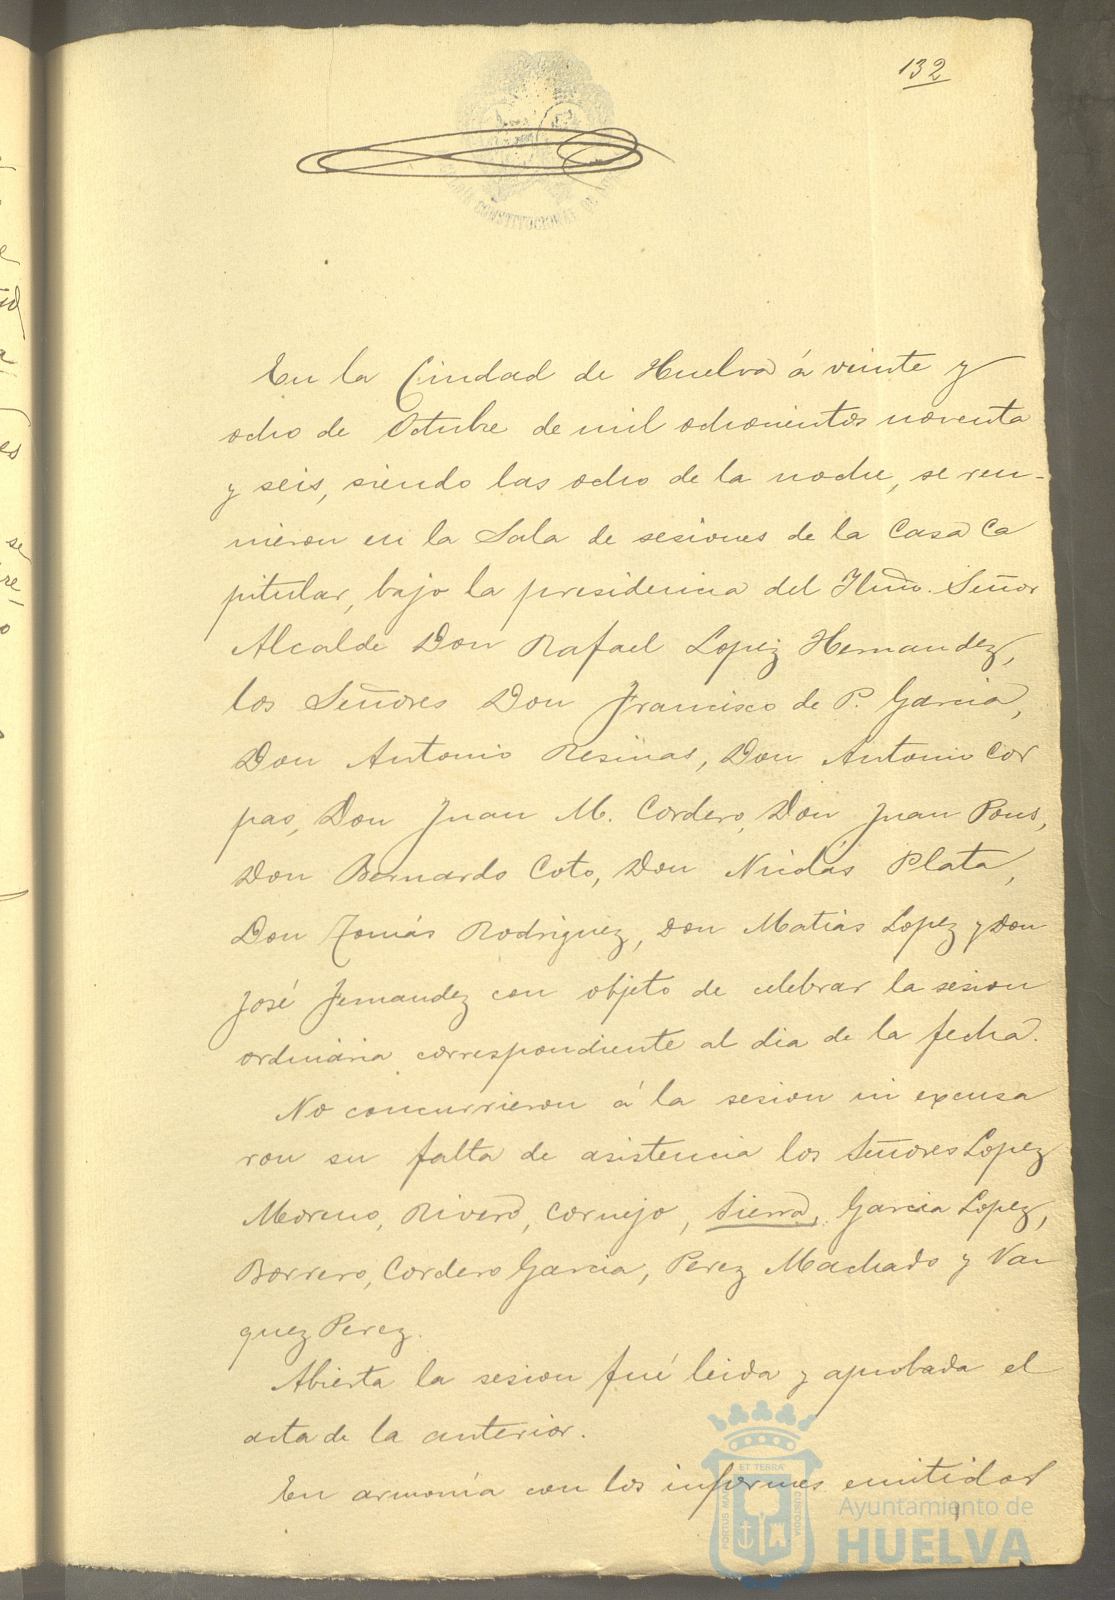 132
CONSTITUCIONAL DE
En la Ciudad de Huelva á veinte y
ocho de Octubre de mil ochocientos noventa
y seis, siendo las ocho de la noche, se reu-
nieron en la Sala de sesiones de la Casa Ca
pitular, bajo la presidencia del Iltmo. Señor
Alcalde Don Rafael Lopez Hernandez,
los Señores Don Francisco de P. Garcia,
Don Antonio Resinas, Don Antonio Cor
pas, Don Juan M. Cordero, Don Juan Pons,
Don Bernardo Coto, Don Nicolás Plata,
Don Tomás Rodriguez, Don Matias Lopez y Don
José Fernandez con objeto de celebrar la sesion
ordinaria correspondiente al dia de la fecha.
No concurrieron á la sesion ni excusa
ron su falta de asistencia los Señores Lopez
Moreno, Rivero, Cornejo, Sierra, Garcia Lopez,
Borrero, Cordero Garcia, Perez Machado y Vaz
quez Perez.
Abierta la sesion fué leida y aprobada el
acta de la anterior.
En armonía con los informes emitidos
PORTUS MARIS ET TERRAE CUSTODIA
Ayuntamiento de
HUELVA